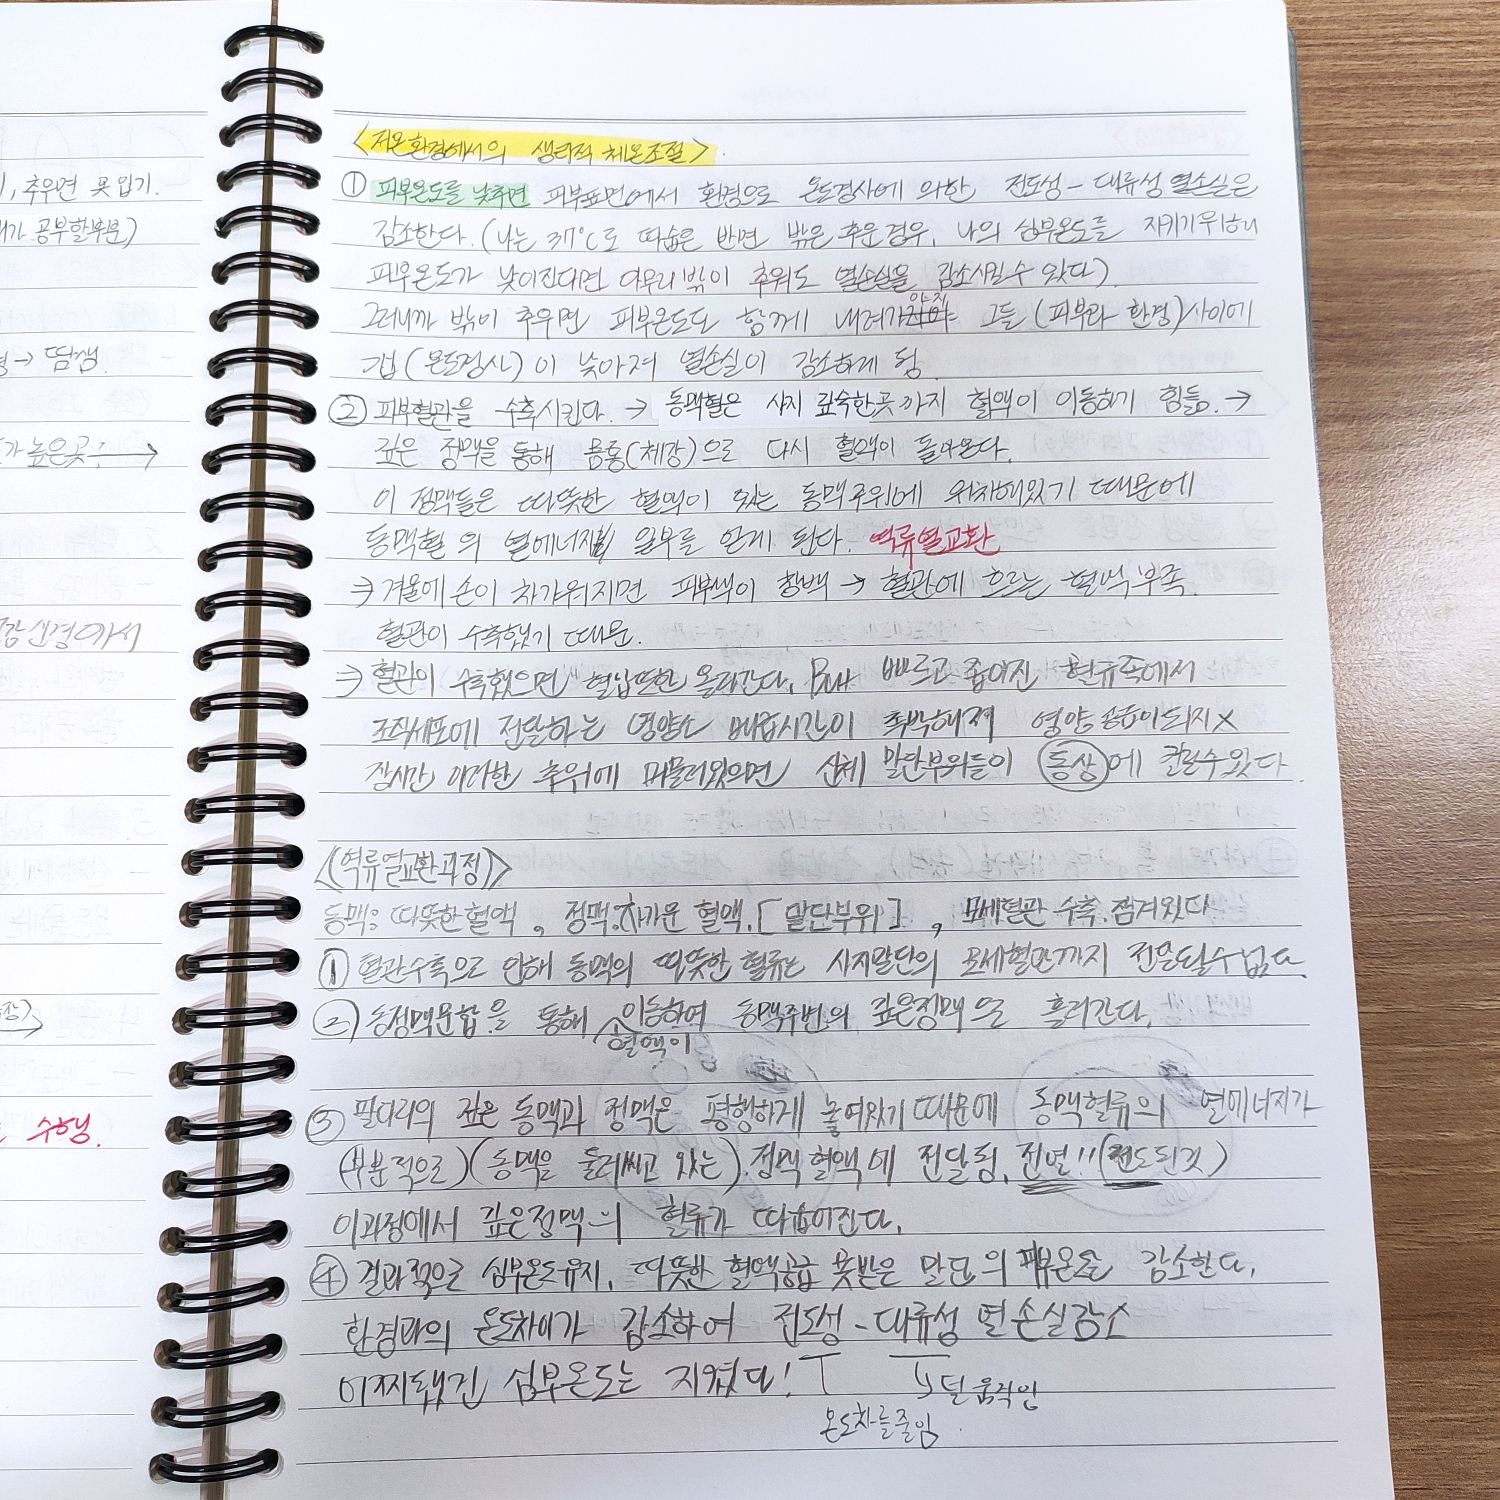 , 추우면 못 입기.
내가 공부할부분)
→ 땀샘
가 높은곳 : →
감신경에서
수행.
<저온환경에서의 생리적 체온조절>
① 피부온도를 낮추면 피부표면에서 환경으로 온도경사에 의한 전도성 - 대류성 열손실은
감소한다. (나는 37℃로 따습은 반면 밖은 추운경우, 나의 심부온도를 지키기위해
피부온도가 낮아진다면 아무리 밖이 추워도 열손실을 감소시킬수 있다)
그러니까 밖이 추우면 피부온도도 함께 내려가야지 그들 (피부와 환경)사이에
갭 (온도경사)이 낮아져 열손실이 감소하게 됨
② 피부혈관을 수축시킨다. → 동맥혈은 사지 깊숙한곳 까지 혈액이 이동하기 힘듦. →
깊은 정맥을 통해 몸통(체강)으로 다시 혈액이 돌아온다.
이 정맥들은 따뜻한 혈액이 있는 동맥주위에 위치해있기 때문에
동맥혈의 열에너지 일부를 얻게 된다. 역류열교환
⇒ 겨울에 손이 차가워지면 피부색이 창백 → 혈관에 흐르는 혈액 부족.
혈관이 수축했기 때문.
⇒ 혈관이 수축했으면 혈압또한 올라간다. But 빠르고 좁아진 혈류속에서
조직세포에 전달하는 영양소 배급시간이 촉박해져 영양 공급이되지 X
장시간 이러한 추위에 머물러있으면 신체 말단부위들이 동상에 걸릴수있다.
<역류열교환과정>
동맥: 따뜻한혈액 , 정맥:차가운 혈액. [말단부위] , 모세혈관 수축. 잠겨있다
① 혈관수축으로 인해 동맥의 따뜻한 혈류는 사지말단의 모세혈관까지 전달될수없다.
② 동정맥문합을 통해 혈액이 이동하여 동맥주변의 깊은정맥으로 흘러간다.
③ 팔다리의 깊은 동맥과 정맥은 평행하게 놓여있기 때문에 동맥혈류의 열에너지가
(부분적으로) (동맥을 둘러싸고 있는) 정맥 혈액에 전달됨. 전열!! (전도된것)
이과정에서 깊은정맥의 혈류가 따습어진다.
④ 결과적으로 심부온도유지, 따뜻한 혈액공급 못받은 말단의 피부온도는 감소한다.
환경과의 온도차이가 감소하여 전도성 - 대류성 열손실감소
어찌됐건 심부온도는 지켰다!
↳ 덜 움직임
온도차를줄임.